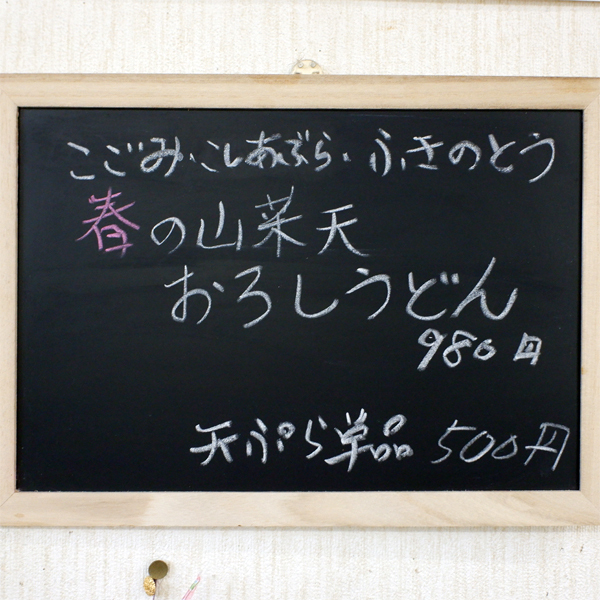 こごみ・こしあぶら・ふきのとう
春の山菜天
おろしうどん
980円
天ぷら単品 500円